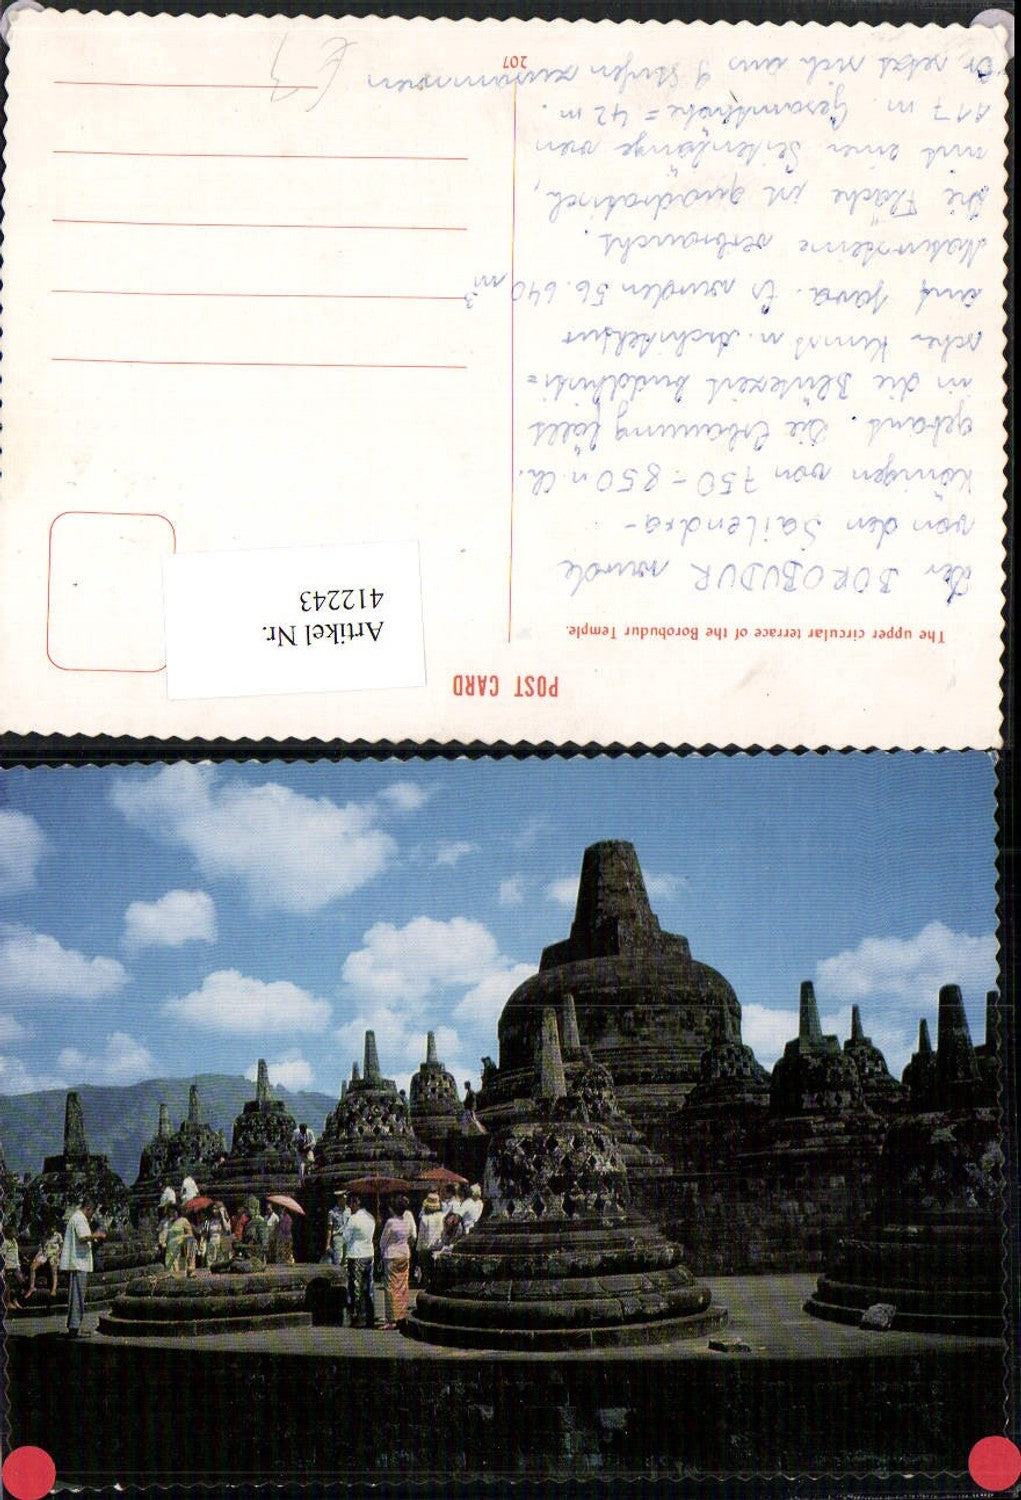 POST CARD
The upper circular terrace of the Borobudur Temple.
Artikel Nr.
412243
Der BOROBUDUR wurde
von den Sailendra-
Königen von 750-850 n. Ch.
gebaut. Die Erbauung fällt
in die Blütezeit buddhisti=
scher Kunst u. Architektur
auf Java. Es wurden 56.640 m³
Natursteine verbraucht.
Die Fläche ist quadratisch,
mit einer Seitenlänge von
117 m. Gesamthöhe = 42 m.
Er setzt sich aus 9 Stufen zusammen
207